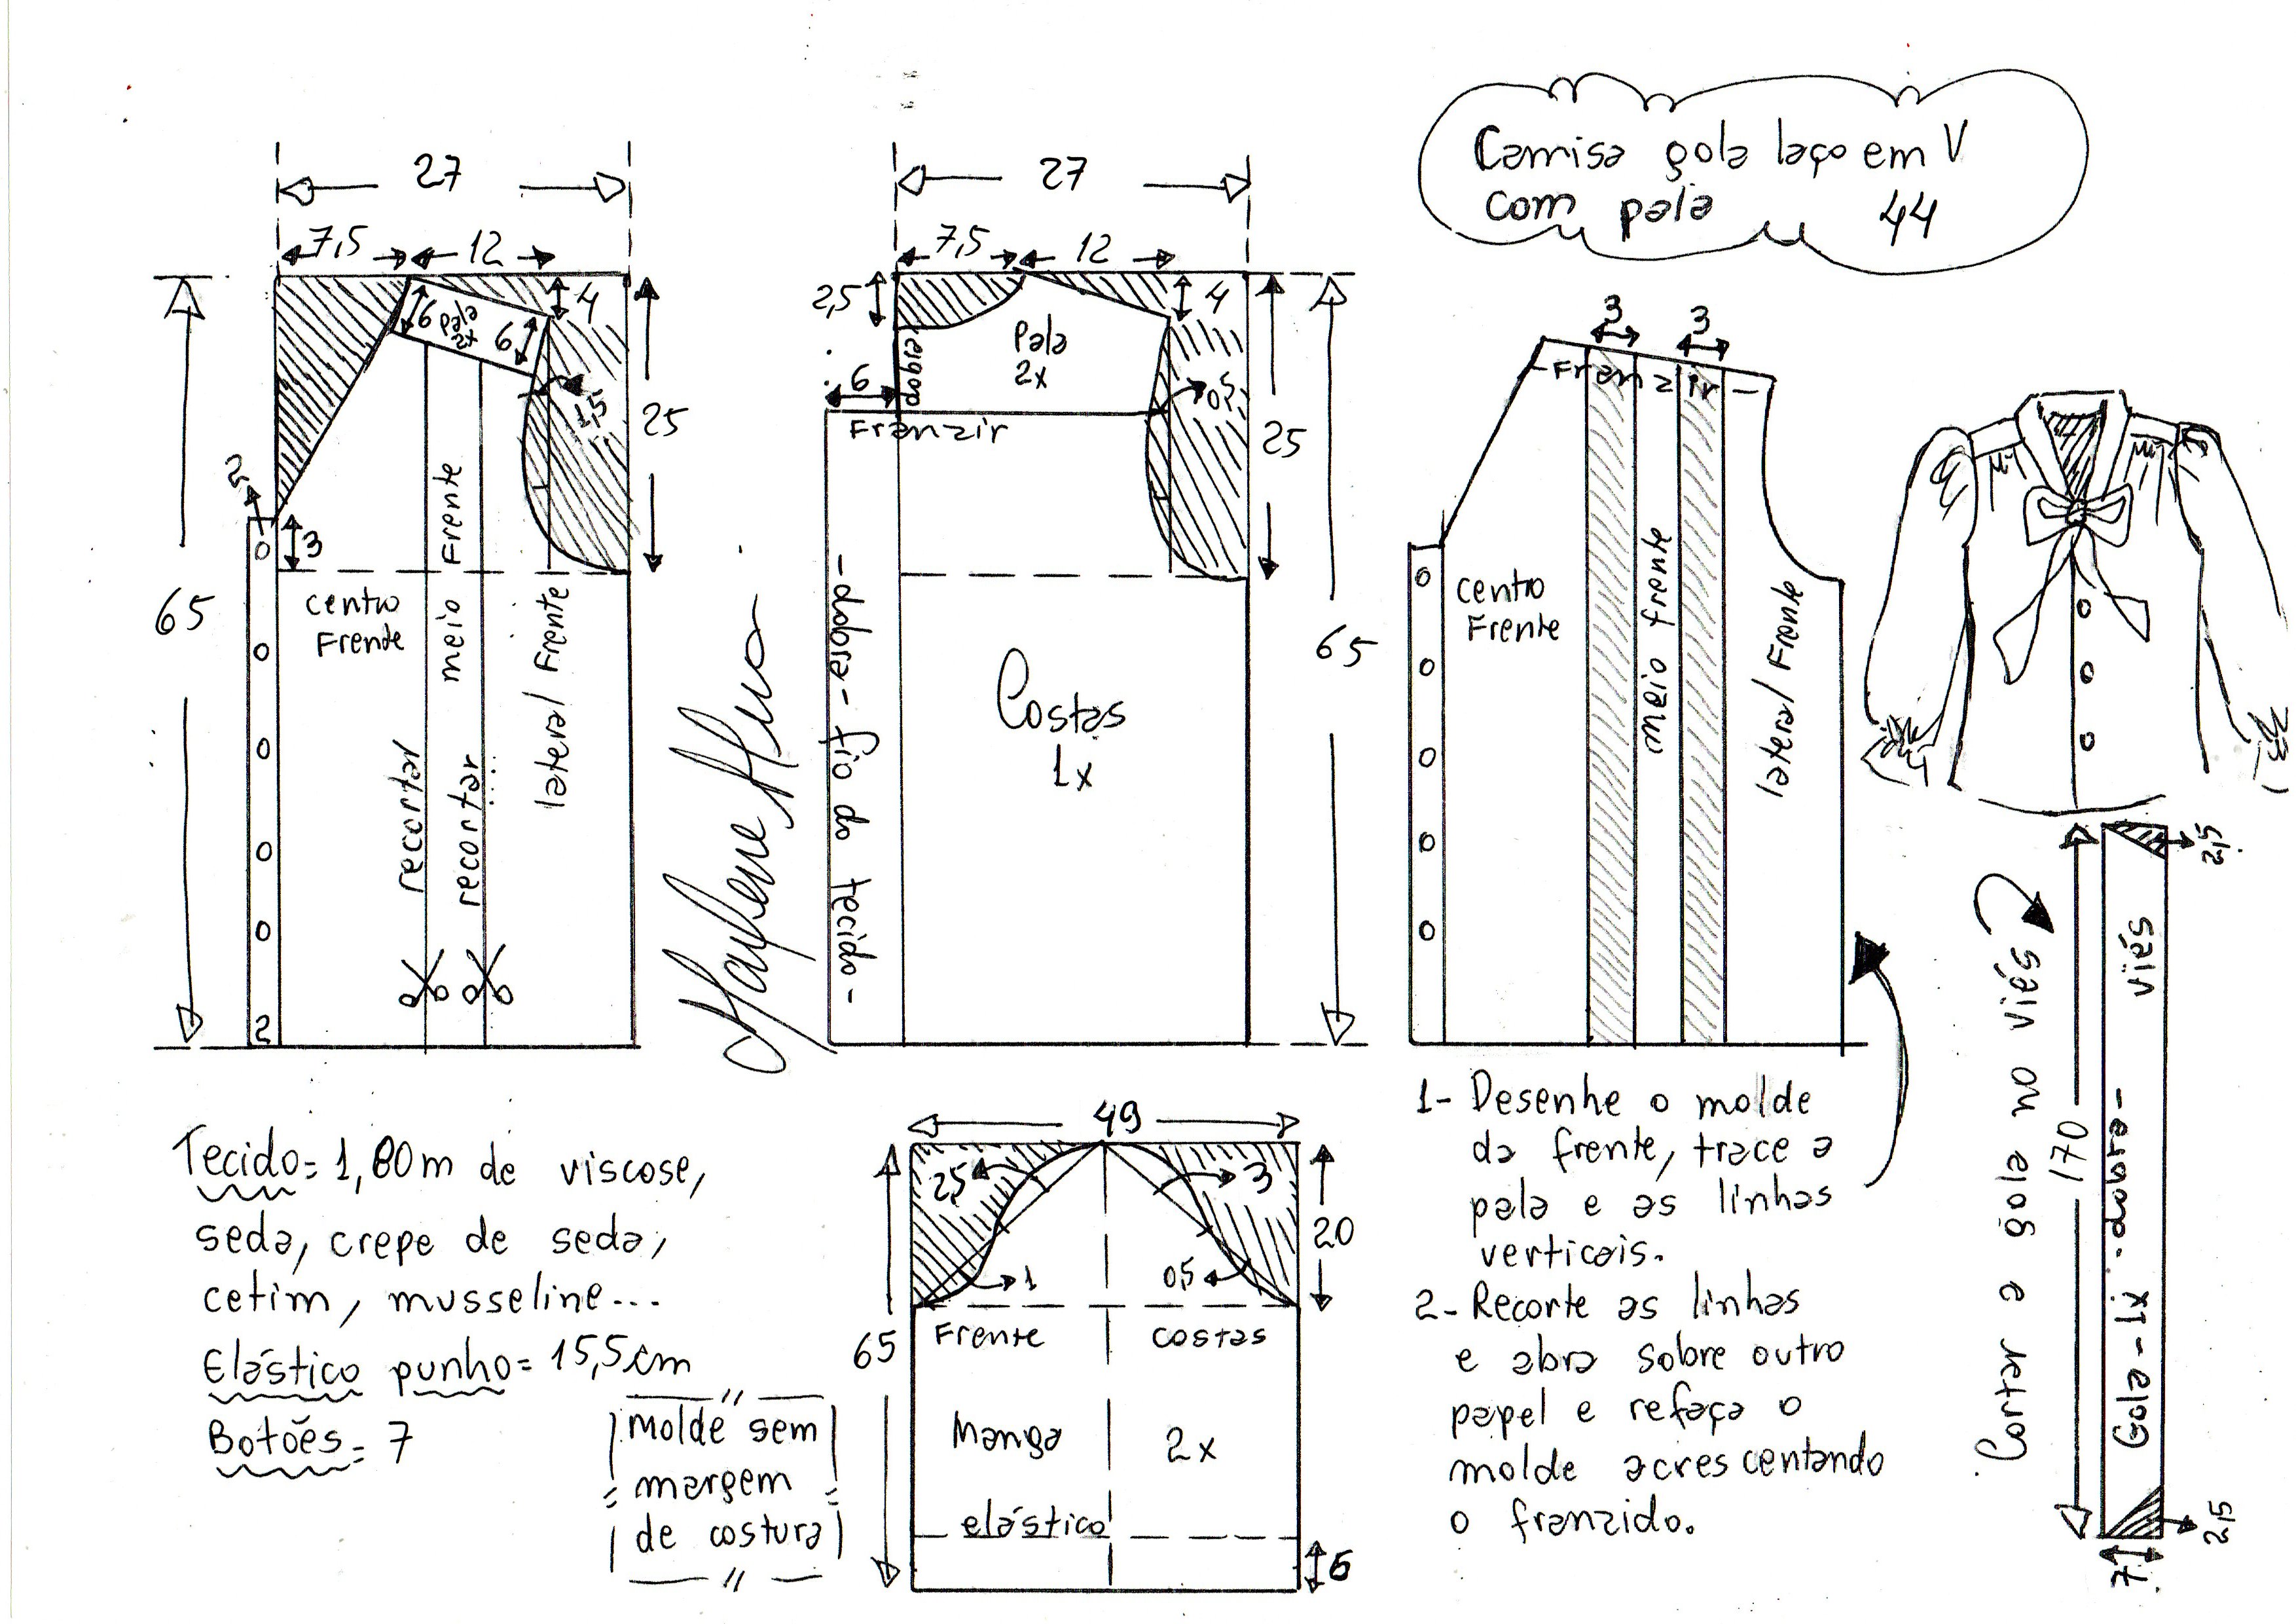 Camisa gola laço em V
com pala 44
27
7,5
12
4
6
pala
2x
6
1,5
25
2
3
65
centro
Frente
meio Frente
lateral Frente
recortar
recortar
2
Marlene Mukai
27
7,5
12
2,5
4
dobra
Pala
2x
6
0,5
Franzir
25
65
-dobra- fio do tecido-
Costas
1x
3
3
-Franzir-
centro
Frente
meio frente
lateral Frente
Tecido= 1,80m de viscose,
seda, crepe de seda,
cetim, musseline...
Elástico punho= 15,5cm
Botões= 7
molde sem
margem
de costura
49
2,5
3
1
0,5
20
65
Frente
costas
Manga
2x
elástico
6
1- Desenhe o molde
da frente, trace a
pala e as linhas
verticais.
2- Recorte as linhas
e abra sobre outro
papel e refaça o
molde acrescentando
o franzido.
Cortar a gola no viés
170
Gola - 1x -dobra- viés
2,5
2,5
7